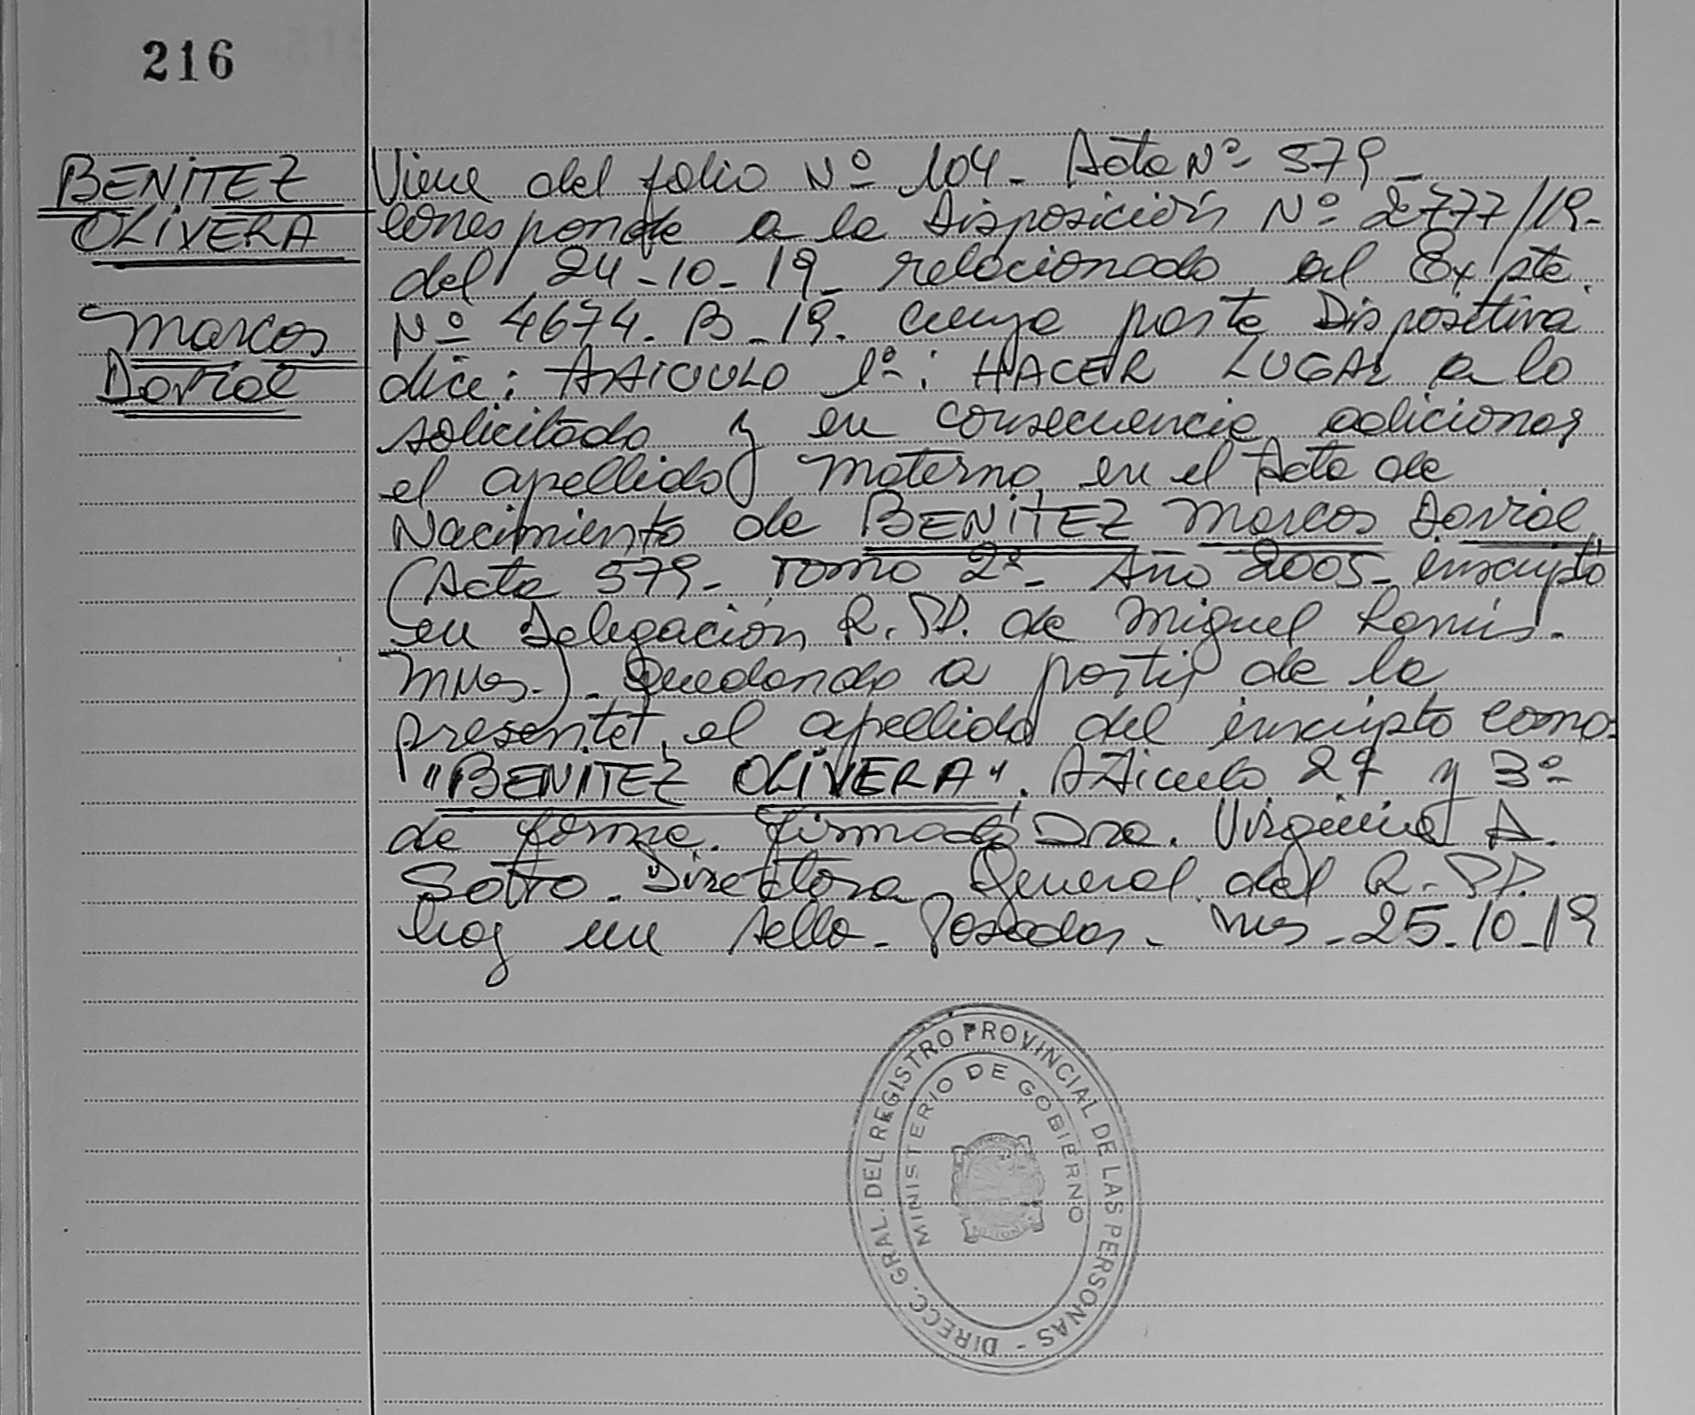 216
BENITEZ
OLIVERA
Marcos
Daniel
Viene del folio Nº 104- Acta Nº 579-
corresponde a la Disposición Nº 2777/19-
del 24-10-19- relacionado al Expte.
Nº 4674-B-19. cuya parte Dispositiva
dice: ARTICULO 1º: HACER LUGAR a lo
solicitado y en consecuencia adicionar
el apellido materno en el Acta de
Nacimiento de BENITEZ Marcos Daniel
(Acta 579- Tomo 2º- Año 2005- inscripto
en Delegación R.PP. de Miguel Lanús.
Mnes.). Quedando a partir de la
presente, el apellido del inscripto como:
"BENITEZ OLIVERA". Articulo 2º y 3º
de forma. Firmado Dra. Virginia A.
Sotto. Directora General del R.PP.
hay un sello- Posadas- Mnes-25-10-19
DIRECC. GRAL. DEL REGISTRO PROVINCIAL DE LAS PERSONAS -
MINISTERIO DE GOBIERNO